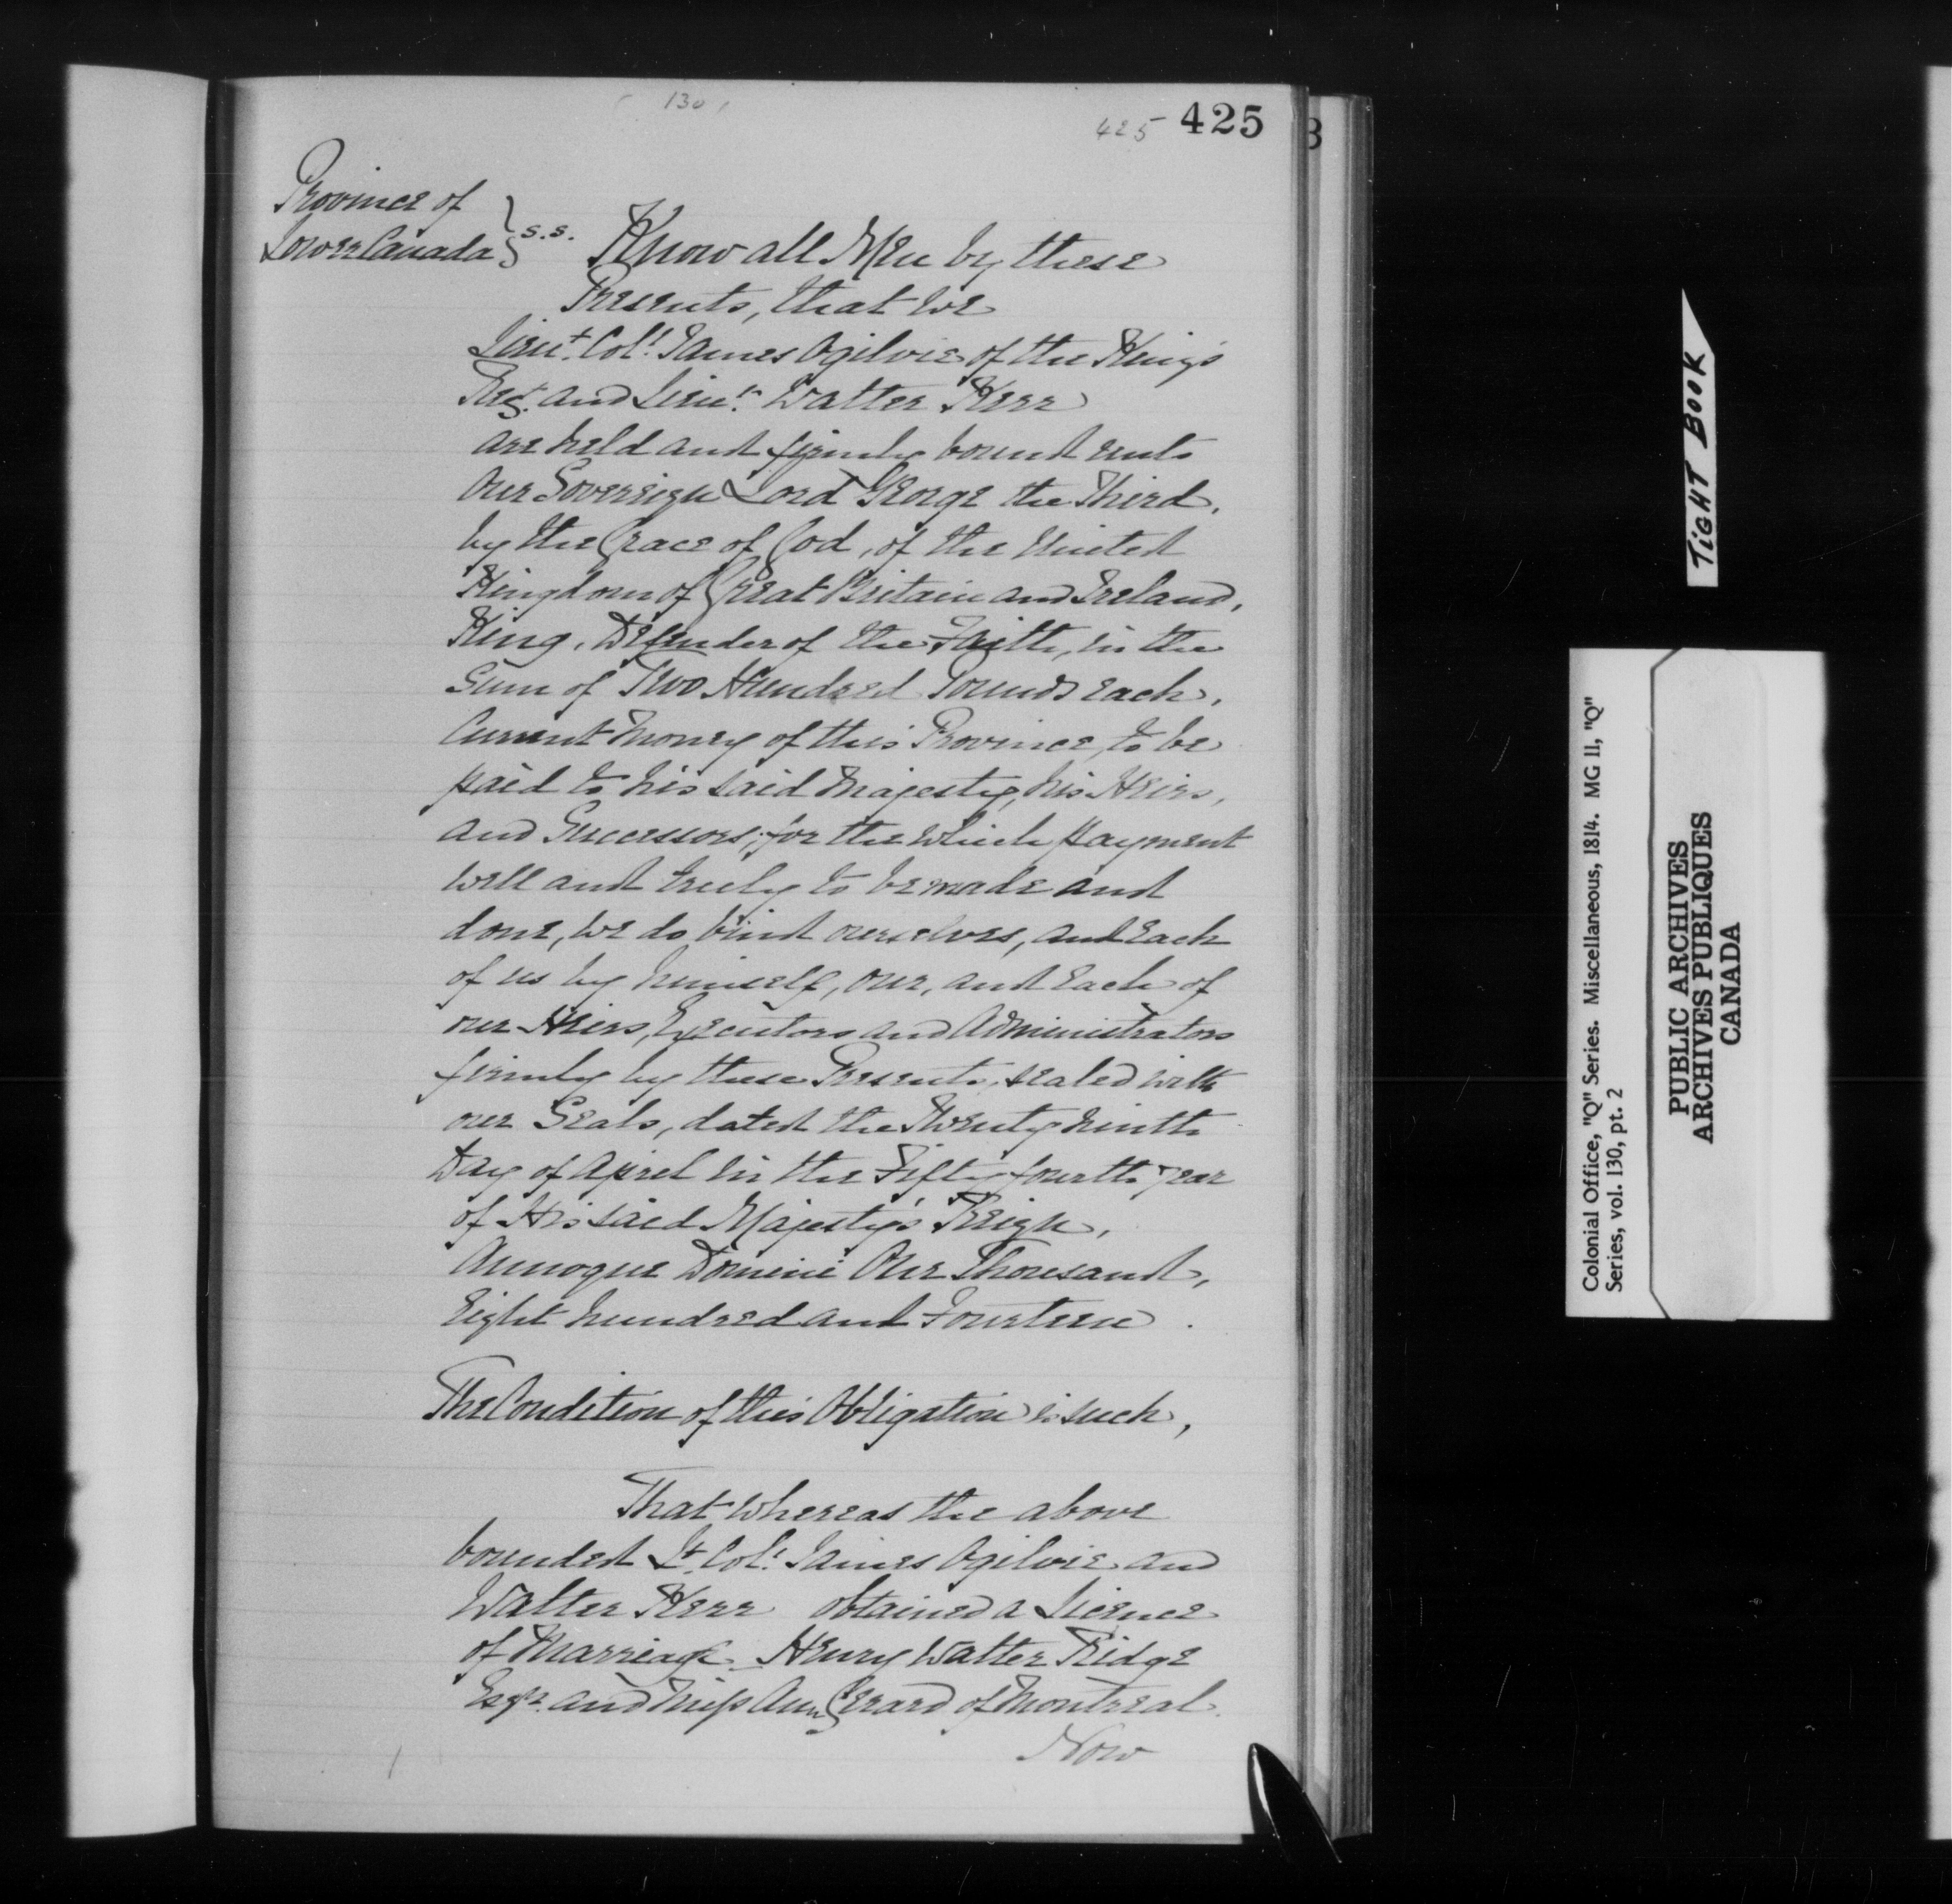 130
425 425
Province of
Lower Canada } s.s. Know all Men by these
Presents, that we
Lieut. Col. James Ogilvie of the King's
Regt. and Lieut. Walter Kerr
are held and firmly bound unto
Our Sovereign Lord George the Third,
by the Grace of God, of the United
Kingdom of Great Britain and Ireland,
King, Defender of the Faith, in the
Sum of Two Hundred Pounds each,
Current money of this Province, to be
paid to his said Majesty, his Heirs,
and Successors; for the which payment
well and truly to be made and
done, we do bind ourselves, and each
of us by himself, our, and each of
our Heirs, Executors and Administrators
firmly by these Presents, sealed with
our Seals, dated the Twenty ninth
Day of April in the Fifty fourth year
of His said Majesty's Reign,
Annoque Domini One Thousand,
Eight hundred and Fourteen.
The Condition of this Obligation is such,
That whereas the above
bounded Lt. Col. James Ogilvie and
Walter Kerr obtained a Licence
of Marriage Henry Walter Ridge
Esqr. and Miss Ann Gerard of Montreal.
Now
TIGHT BOOK
Colonial Office, "Q" Series. Miscellaneous, 1814. MG 11, "Q"
Series, vol. 130, pt. 2
PUBLIC ARCHIVES
ARCHIVES PUBLIQUES
CANADA